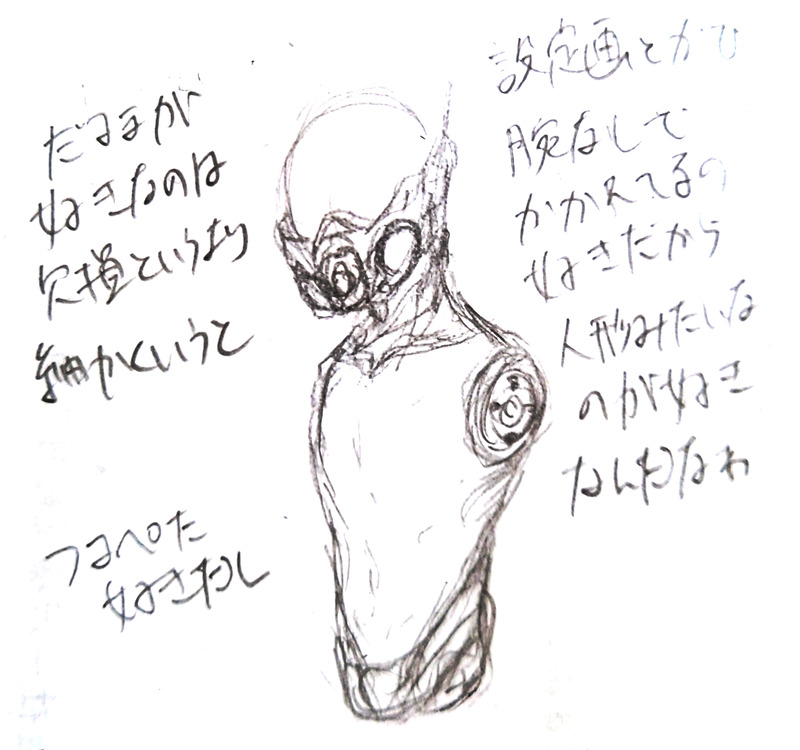 だるまが
好きなのは
欠損というより
細かくいうと
設定画とかで
腕なしで
かかれてるの
好きだから
人形みたいな
のが好き
なんだなわ
つるぺた
好きだし